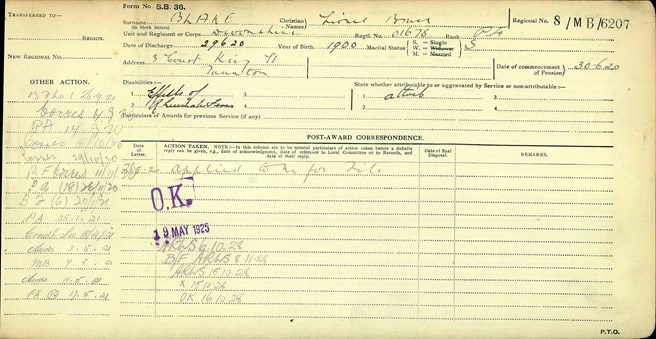 Form No. S.B. 36.
TRANSFERRED TO—
REGION.
NEW REGIONAL No.
Surname BLAKE
(In block letters)
Christian Name/s Lionel
Regional No. 8/MB/6207
Unit and Regiment or Corps Devonshire
Regtl. No. 01678 Rank Pte
Date of Discharge 29620 Year of Birth 1900 Marital Status
S. — Single
W. — Widower
M. — Married
S
Address 3 Court King St
Taunton
Date of commencement of Pension 30.6.20
Disabilities:—
1 Effects of
2
3
4
State whether attributable to or aggravated by Service or non-attributable:—
1 attrib
2
3
4
Particulars of Awards for previous Service (if any)
OTHER ACTION.
POST-AWARD CORRESPONDENCE.
Date of Letter.
ACTION TAKEN. NOTE:—In this column should be entered particulars of action taken before a definite reply can be given, e.g., date of acknowledgment, date of reference to Local Committee or to Records, and date of their reply.
Date of final Disposal.
REMARKS.
Applied for file
O.K.
19 MAY 1925
ARWS 9.10.28
B/F ARWS 8.11.28
ARWS 15.10.28
X 15.10.28
OK 16.10.28
PA 14.9.20
29/10/20
PA (18) 26/11/20
B F (6) 20/1/21
PA 25.1.21
3.5.21
MB 7.5.21
11.5.21
PA @ 17.5.21
P.T.O.